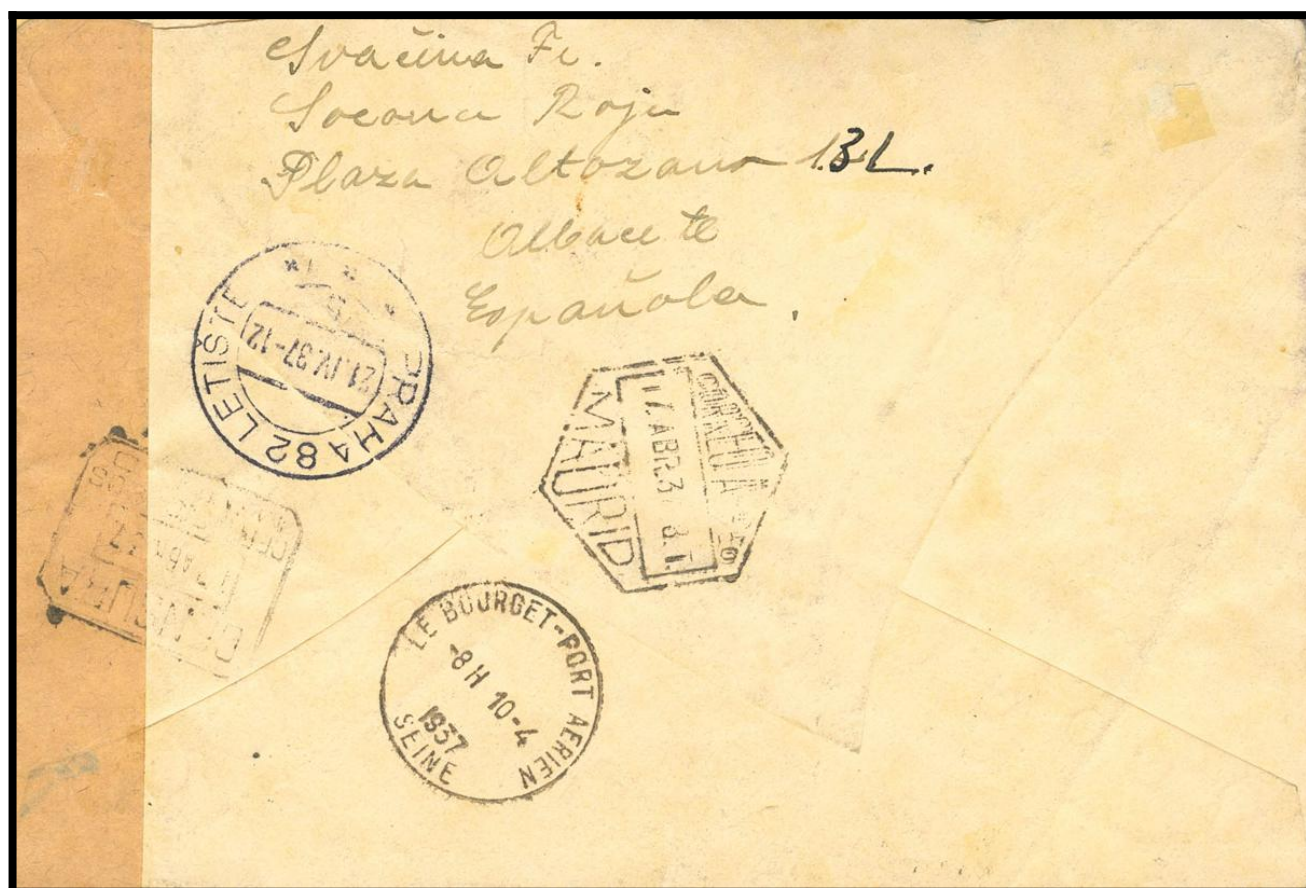 Svačina Fr.
Socorra Roju
Plaza Altozano 13L.
Albacete
Española.
PRAHA 82 LETIŠTĚ
21.IV.37-12
CORREO AEREO
ABR.37
MADRID
CENSURA
ABR. 37
LE BOURGET-PORT AERIEN
-8H 10-4
1937
SEINE